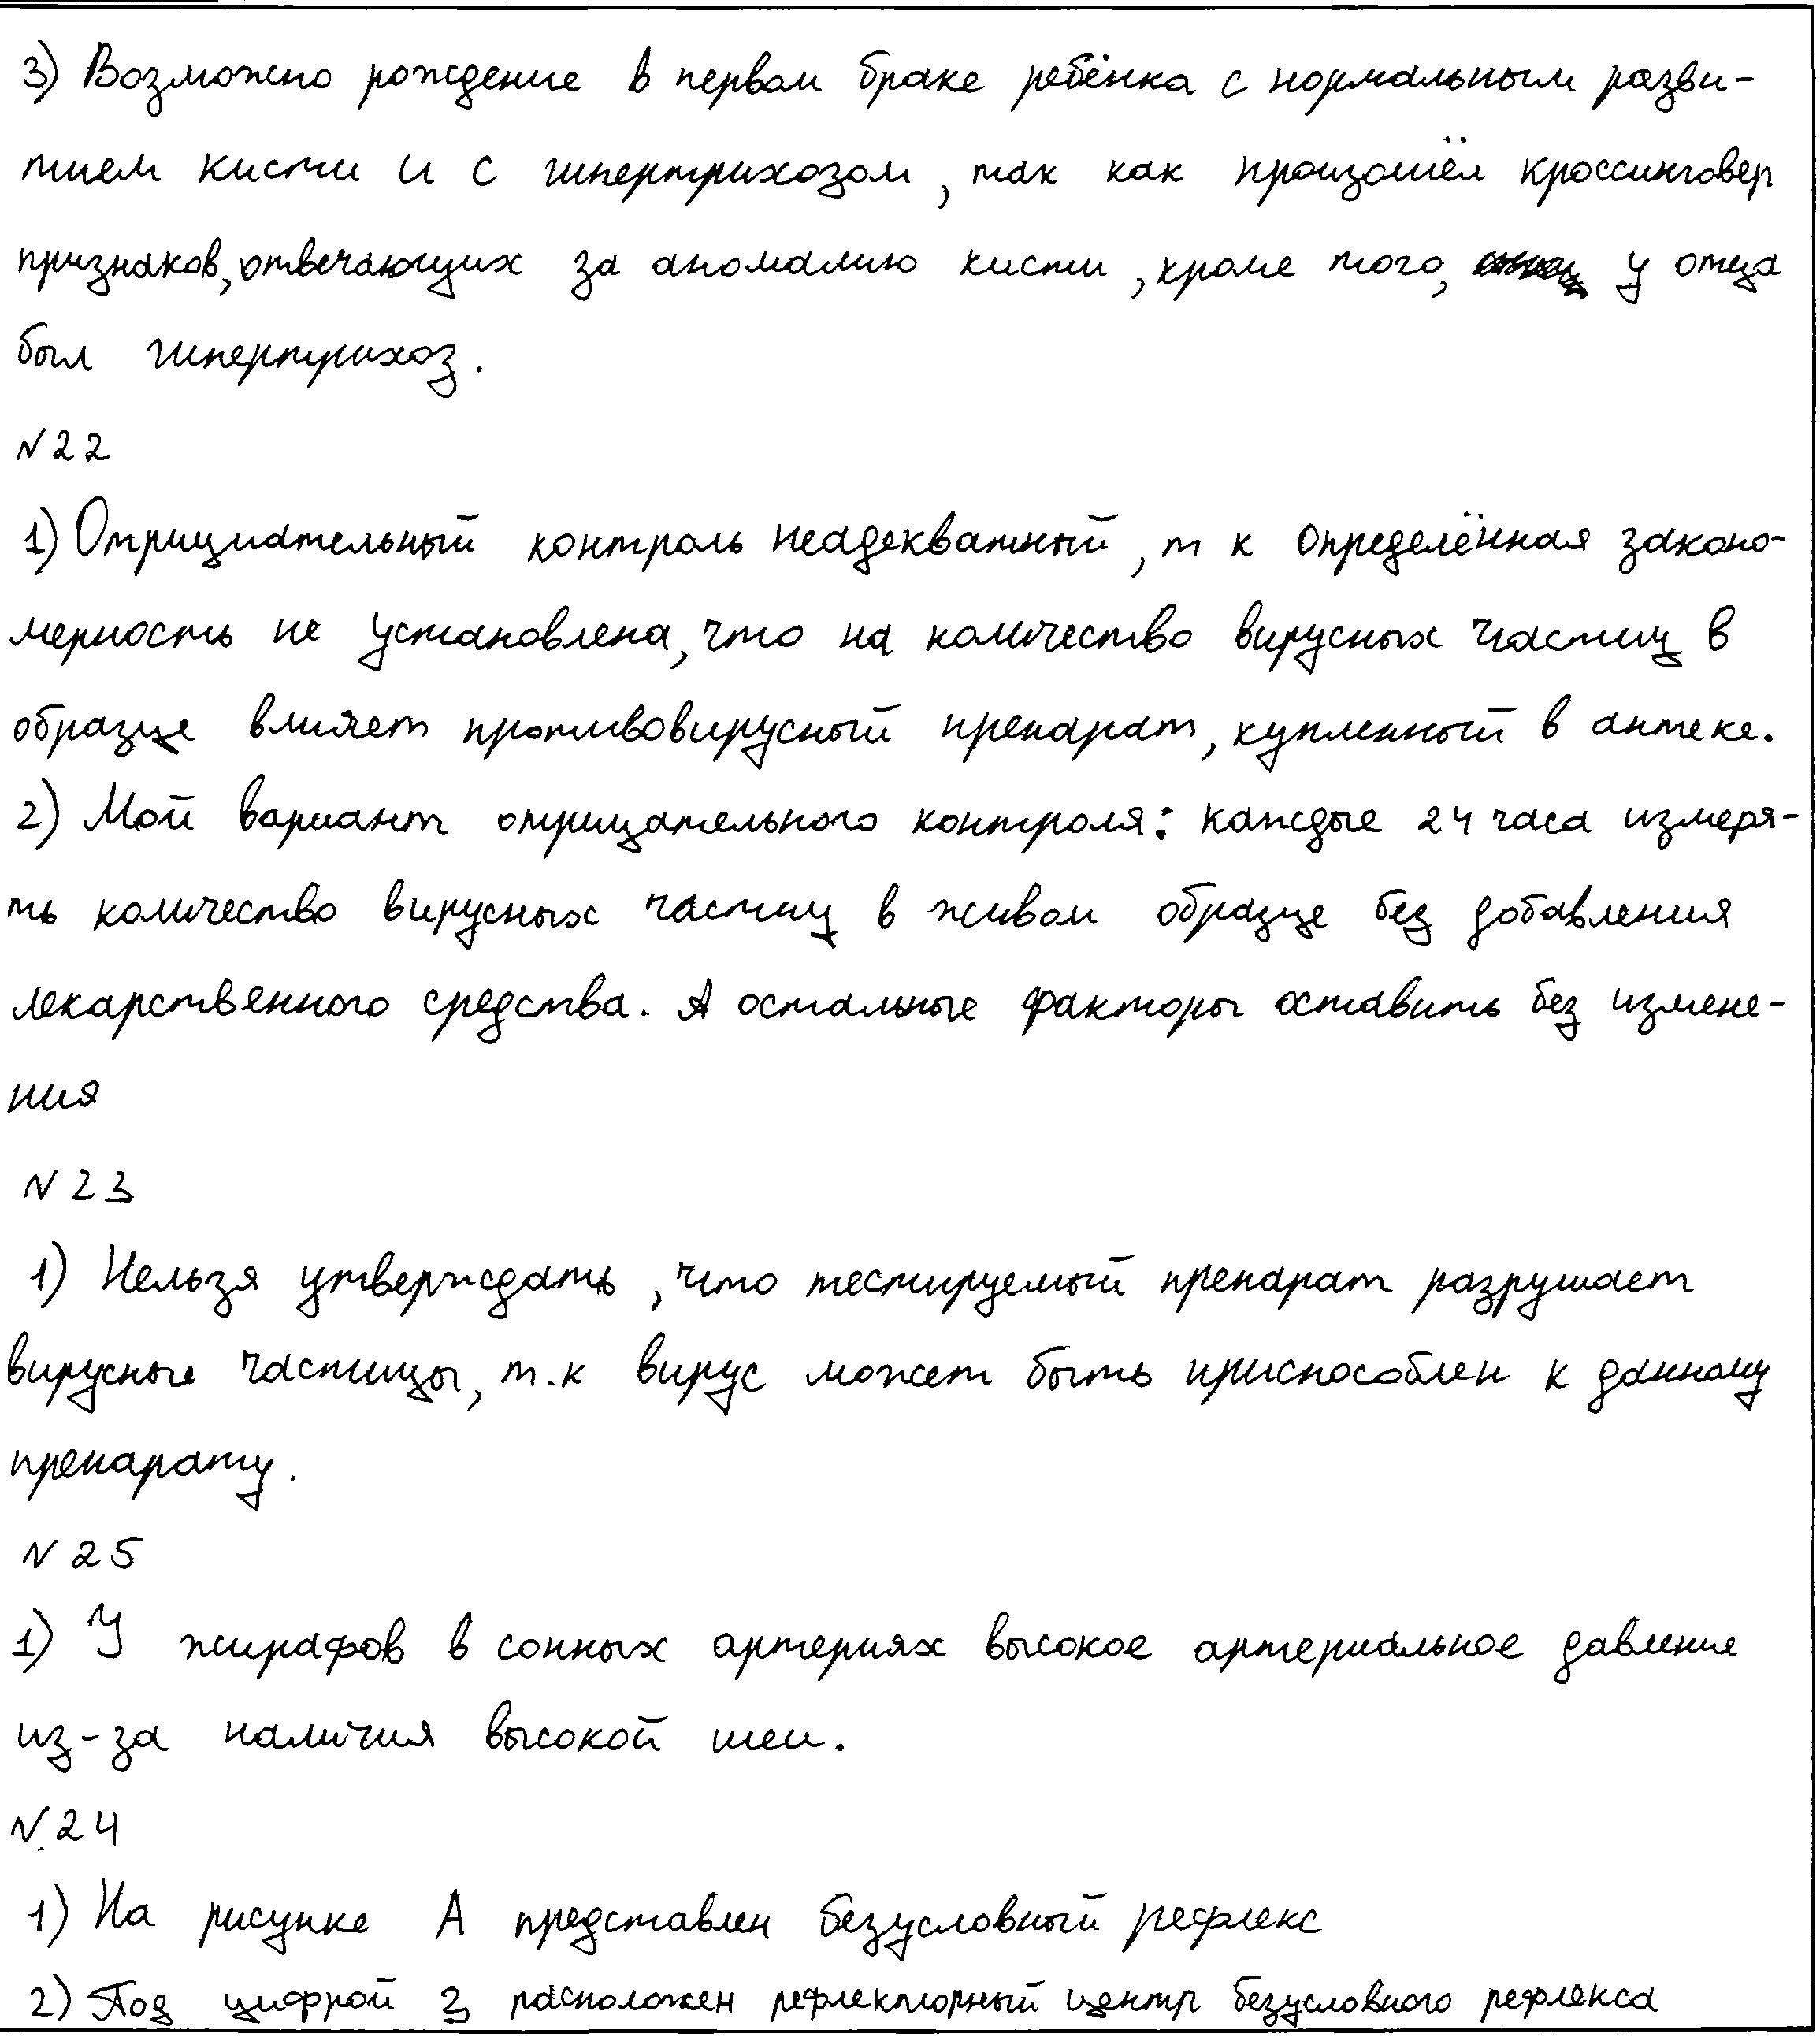 3) Возможно рождение в первом браке ребёнка с нормальным разви-
тием кисти и с гипертрихозом, так как произошёл кроссинговер
признаков, отвечающих за аномалию кисти, кроме того, у отца
был гипертрихоз.
№22
1) Отрициательный контроль неадекватный, т к определённая законо-
мерность не установлена, что на количество вирусных частиц в
образце влияет противовирусный препарат, купленный в аптеке.
2) Мой вариант отрицательного контроля: каждые 24 часа измеря-
ть количество вирусных частиц в живом образце без добавления
лекарственного средства. А остальные факторы оставить без измене-
ния
№23
1) Нельзя утверждать, что тестируемый препарат разрушает
вирусные частицы, т.к вирус может быть приспособлен к данному
препарату.
№25
1) У жирафов в сонных артериях высокое артериальное давление
из-за наличия высокой шеи.
№24
1) На рисунке А представлен безусловный рефлекс
2) Под цифрой 3 расположен рефлекторный центр безусловного рефлекса